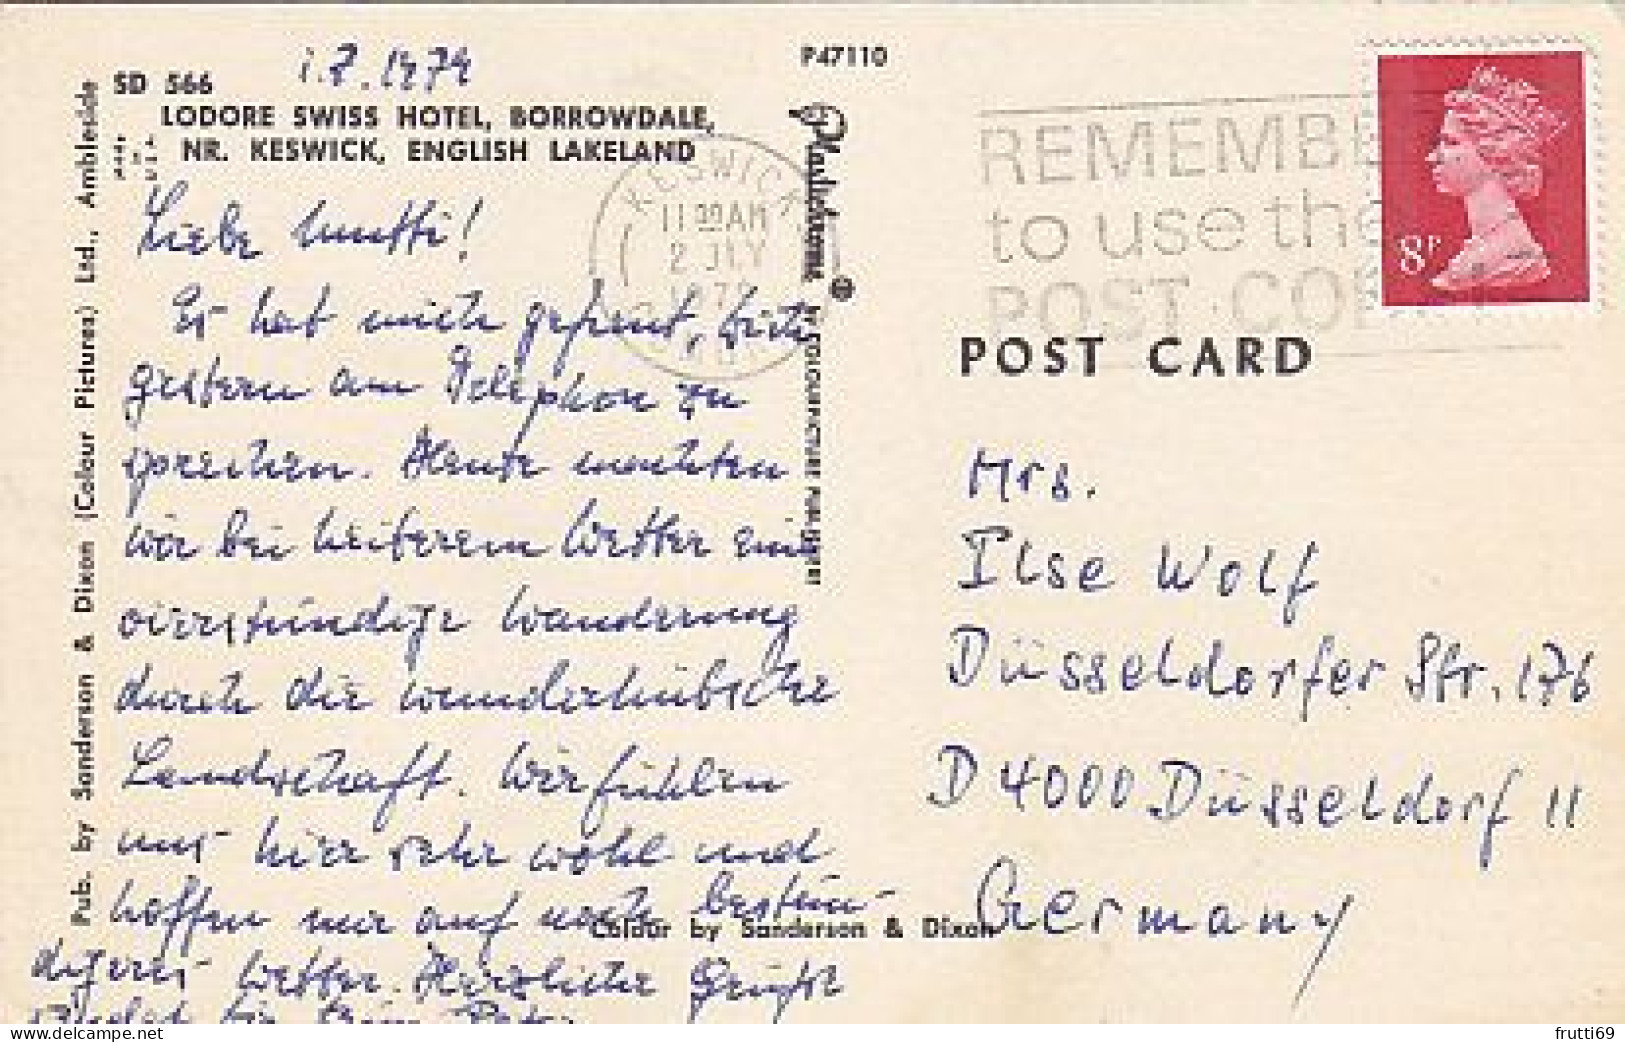 1.7.1979
P47110
SD 566
LODORE SWISS HOTEL, BORROWDALE,
NR. KESWICK, ENGLISH LAKELAND
Pub. by Sanderson & Dixon (Colour Pictures) Ltd., Ambleside
Liebe Mutti!
Es hat mich gefreut, Dich
gestern am Telephon zu
sprechen. Heute machten
wir bei heiterem Wetter eine
vierstündige Wanderung
durch die wunderhübsche
Landschaft. Wir fühlen
uns hier sehr wohl und
hoffen nur auf noch bestän-
digeres Wetter. Herzliche Grüße
Peter
Plastichrome ®
Colour by Sanderson & Dixon
KESWICK
11 AM
2 JLY
REMEMBE
to use the
POST CO
8P
POST CARD
Mrs.
Ilse Wolf
Düsseldorfer Str. 176
D 4000 Düsseldorf 11
Germany
delcampe.net
frutti69